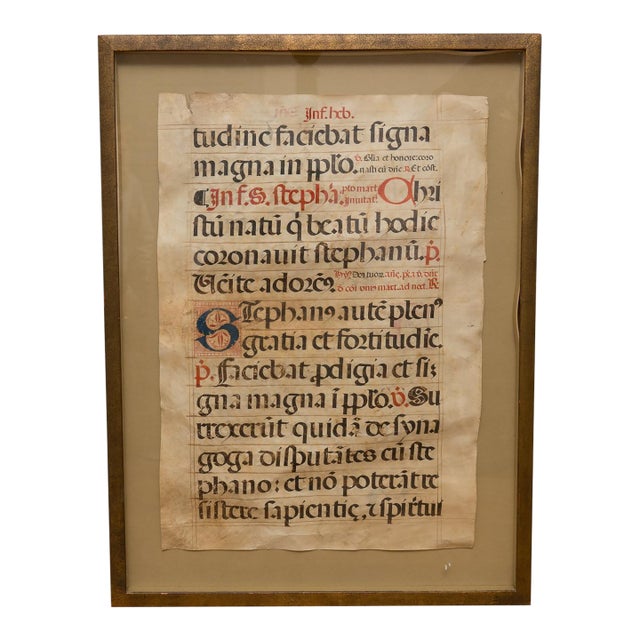 Inf. heb.
tudine faciebat signa
magna in pp̄lo. v̇. Glia et honore: coro
nasti eū dn̄e. R. Et cōst.
¶ In f. S. stephā. pto mart. Inuitat. Chri
stū natū q̄ beatū hodie
coronauit stephanū. p̄.
Uēite adorem⁹. hyⁿ.
Stephan⁹ autē plen⁹
gratia et fortitudie.
p̄. Faciebat ꝓdigia et si⸗
gna magna ī pp̄lo. v̇. Su
rrexerūt quidā de syna
goga disputātes cū ste
phano: et nō poterāt re
sistere sapientię, ⁊ spiritui